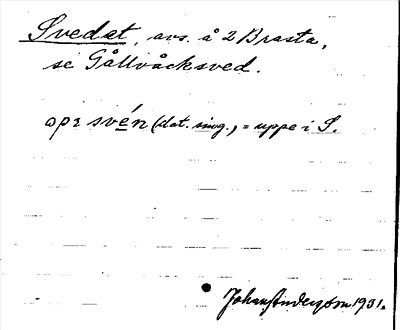 Svedet, avs. å 2 Brasta,
se Gållvåcksved.
opɪ svén (dat. sing.) = uppe i S.
Johan Anderzon 1931.